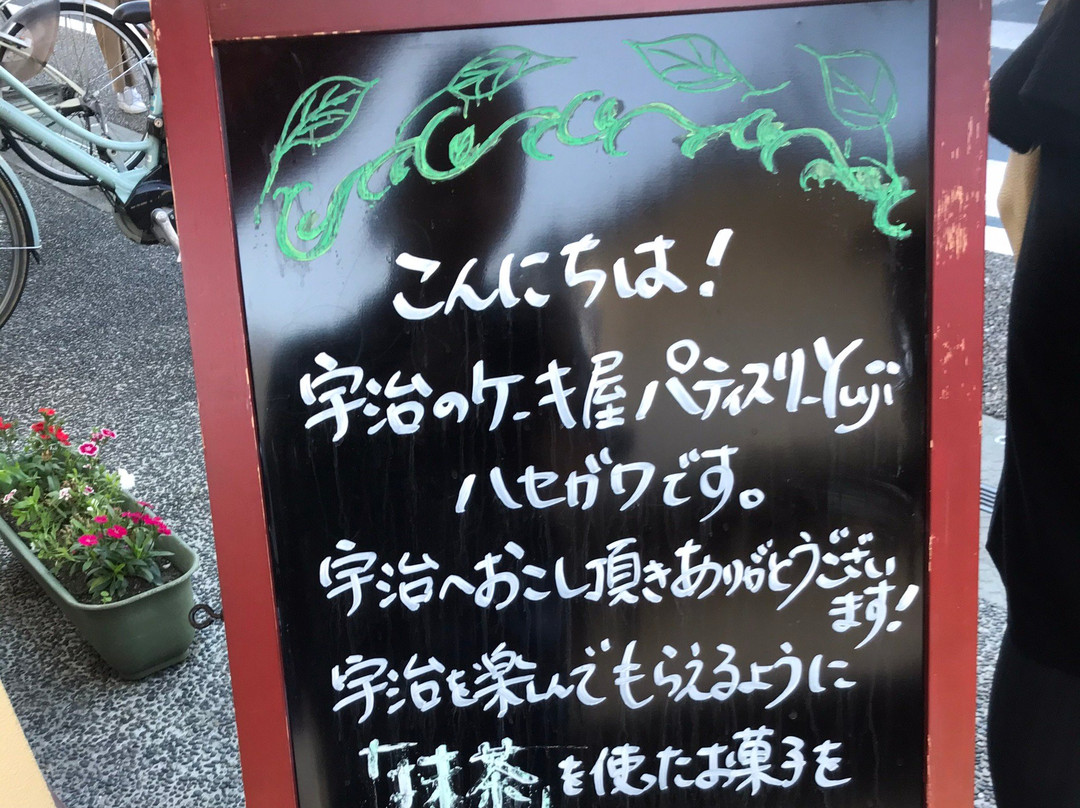 こんにちは!
宇治のケーキ屋 パティスリーYuji
ハセガワです。
宇治へおこし頂きありがとうござい
ます!
宇治を楽しんでもらえるように
「抹茶」を使ったお菓子を